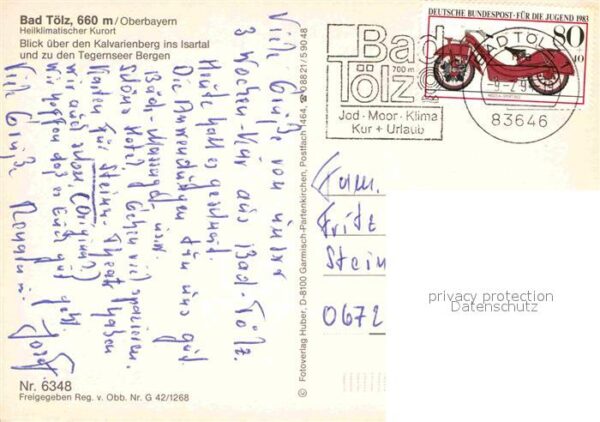 Bad Tölz, 660 m / Oberbayern
Heilklimatischer Kurort
Blick über den Kalvarienberg ins Isartal
und zu den Tegernseer Bergen
Viele Grüße von unserer
3 Wochen-Kur aus Bad-Tölz.
Heute hat es geschneit
Die Anwendungen tun uns gut
Bäder-Massage- usw.
Schönes Hotel. Gehen viel spazieren.
Karten für Steiner-Theat. haben
wir auch schon.
Wir hoffen daß es Euch gut geht.
Viele Grüße
Nr. 6348
Freigegeben Reg. v. Obb. Nr. G 42/1268
© Fotoverlag Huber, D-8100 Garmisch-Partenkirchen, Postfach 1464, ☎ 0 88 21 / 5 90 48
DEUTSCHE BUNDESPOST · FÜR DIE JUGEND 1983
80
+40
Bad
Tölz
700 m
Jod · Moor · Klima
Kur + Urlaub
BAD TÖLZ
83646
Fam.
Fritz
Stein
0672
privacy protection
Datenschutz